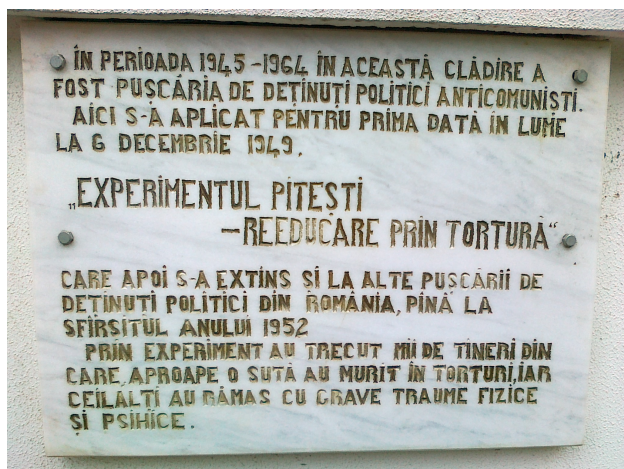 ÎN PERIOADA 1945-1964 ÎN ACEASTĂ CLĂDIRE A
FOST PUŞCĂRIA DE DEŢINUŢI POLITICI ANTICOMUNIŞTI.
AICI S-A APLICAT PENTRU PRIMA DATĂ ÎN LUME
LA 6 DECEMBRIE 1949.
„EXPERIMENTUL PITEŞTI
–REEDUCARE PRIN TORTURĂ“
CARE APOI S-A EXTINS ŞI LA ALTE PUŞCĂRII DE
DEŢINUŢI POLITICI DIN ROMÂNIA, PÎNĂ LA
SFÎRŞITUL ANULUI 1952
PRIN EXPERIMENT AU TRECUT MII DE TINERI DIN
CARE, APROAPE O SUTĂ AU MURIT ÎN TORTURI,IAR
CEILALŢI AU RĂMAS CU GRAVE TRAUME FIZICE
ŞI PSIHICE.